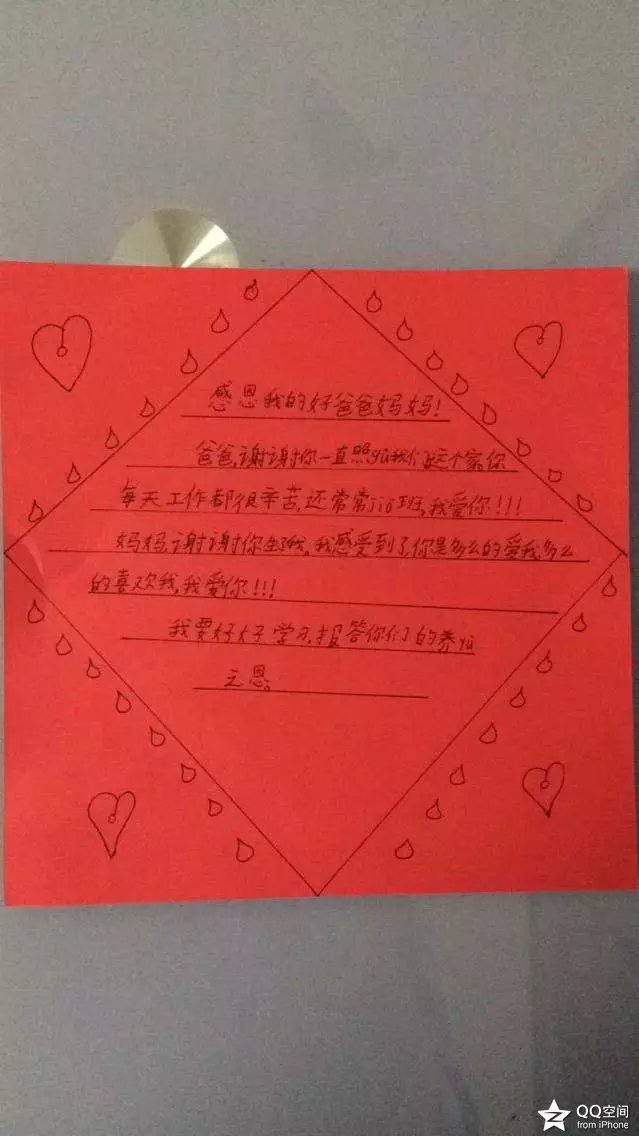 感恩我的好爸爸妈妈!
爸爸,谢谢你一直照gù我们这个家,你
每天工作都很辛苦,还常常jiā班,我爱你!!!
妈妈,谢谢你生了我,我感受到了,你是多么的爱我,多么
的喜欢我,我爱你!!!
我要好好学习,报答你们的养yù
之恩。
QQ空间
from iPhone